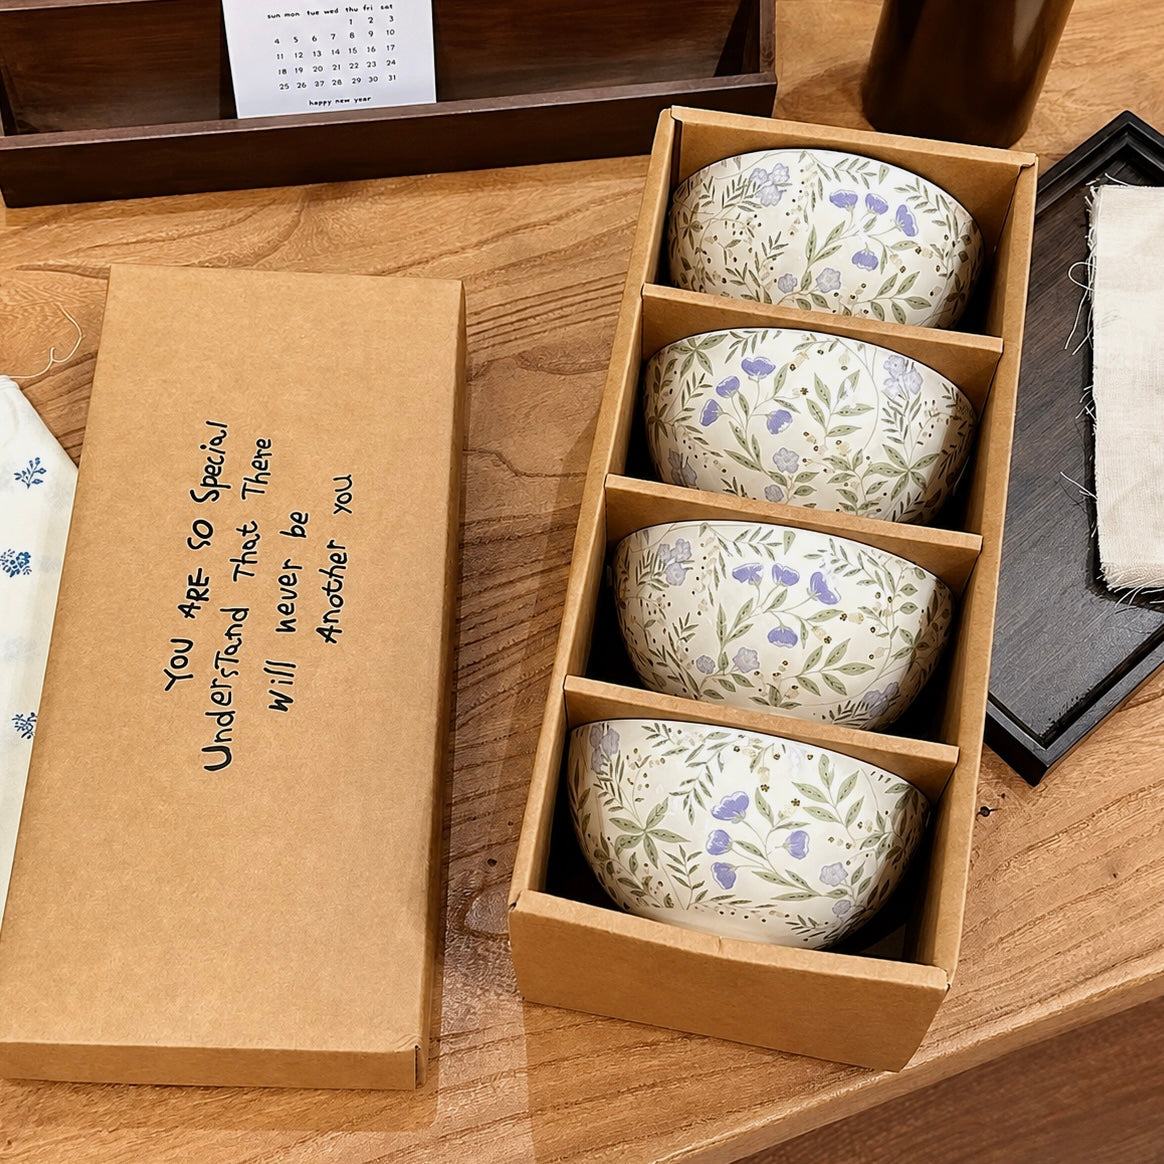 sun mon tue wed thu fri sat
1 2 3
4 5 6 7 8 9 10
11 12 13 14 15 16 17
18 19 20 21 22 23 24
25 26 27 28 29 30 31
happy new year
YOU ARE SO Special
UndersTand That There
will never be
Another you